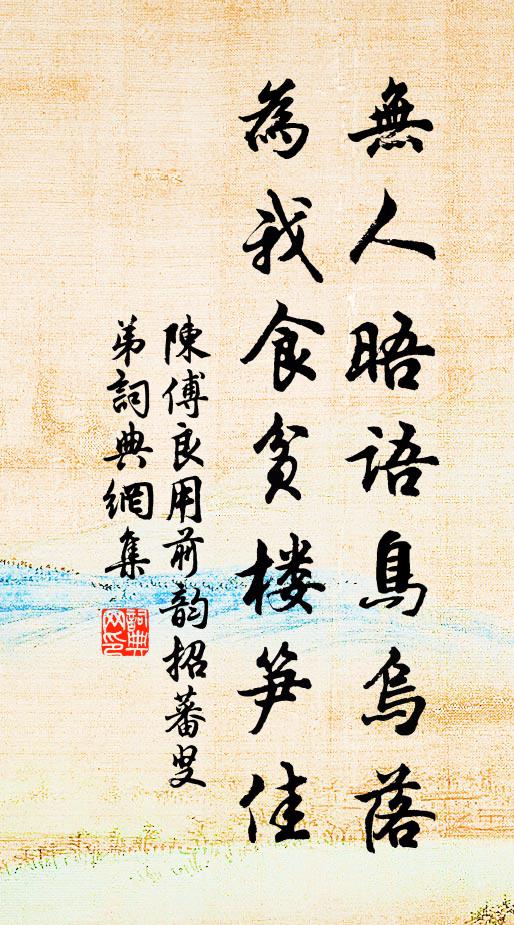 無人晤語鳥烏落
為我食貧樓笋佳
陳傅良用前韵招蕃叟
弟詞典網集
詞典网印